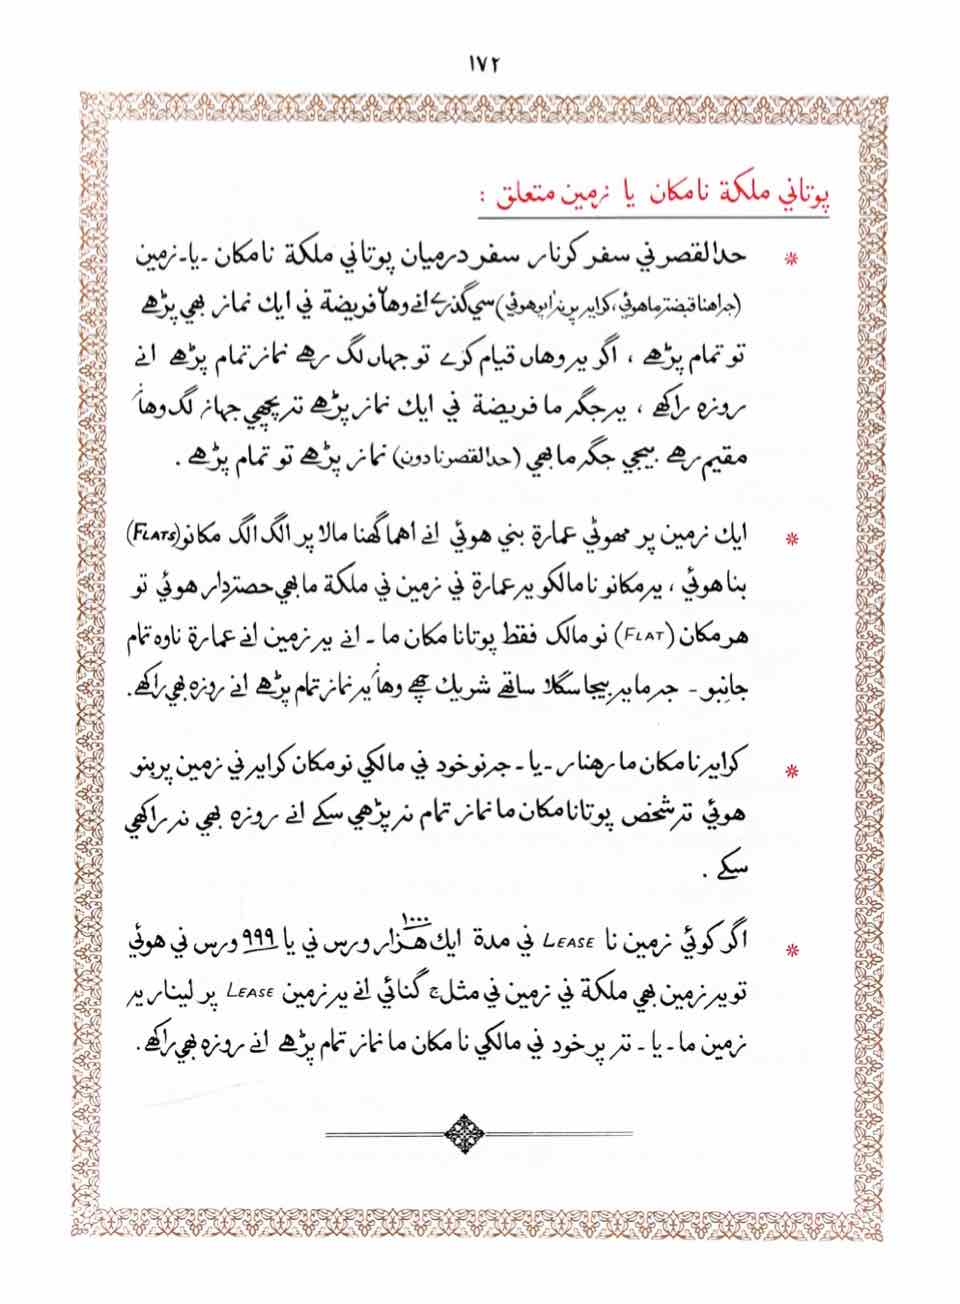 ١٧٢
پوتاني ملكة نا مكان يا زمين متعلق :
* حد القصر ني سفر كرنار سفر درميان پوتاني ملكة نا مكان ـ يا ـ زمين
(جر اهنا قبضة ما هوئي، كراير پر نر ابو هوئي) سي گذرے انے وهاں فريضة ني ايك نماز بهي پڑهے
تو تمام پڑهے ، اگو ير وهاں قيام كرے تو جهاں لگ رهے نماز تمام پڑهے انے
روزه راكهے ، ير جگر ما فريضة ني ايك نماز پڑهے تر پچهي جهاں لگ وهاں
مقيم رهے بيجي جگر ما بهي (حد القصر نا دون) نماز پڑهے تو تمام پڑهے .
* ايك زمين پر مهوٹي عمارة بني هوئي انے اهما گهنا مالا پر الگ الگ مكانو (FLATS)
بنا هوئي ، ير مكانو نا مالكو ير عمارة ني زمين ني ملكة ما بهي حصتردار هوئي تو
هر مكان (FLAT) نو مالك فقط پوتانا مكان ما ـ انے ير زمين انے عمارة ناوه تمام
جانبو ـ جر ما ير بيجا سگلا ساتهے شريك چهے وهاں ير نماز تمام پڑهے انے روزه بهي راكهے.
* كراير نا مكان ما رهنار ـ يا ـ جر نو خود ني مالكي نو مكان كراير ني زمين پر بنو
هوئي تر شخص پوتانا مكان ما نماز تمام نر پڑهي سكے انے روزه بهي نر راكهي
سكے .
* اگر كوئي زمين نا LEASE ني مدة ايك هزار ١٠٠٠ ورس ني يا ٩٩٩ ورس ني هوئي
تو ير زمين بهي ملكة ني زمين ني مثل ج گنائي انے ير زمين LEASE پر لينار ير
زمين ما ـ يا ـ تر پر خود ني مالكي نا مكان ما نماز تمام پڑهے انے روزه بهي راكهے.